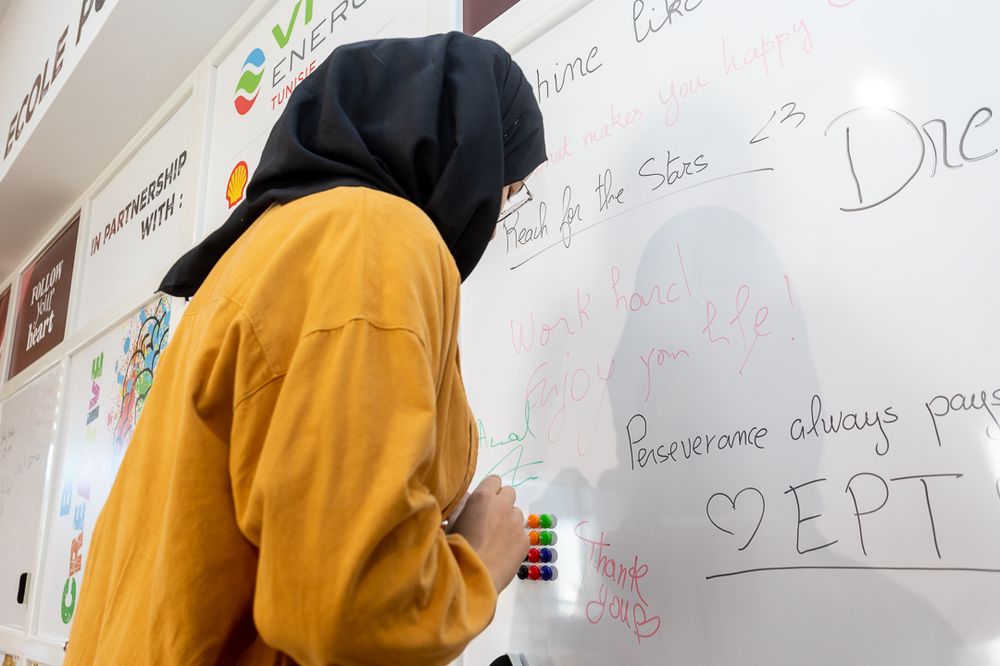 ECOLE PO
VI
ENERG
TUNISIE
IN PARTNERSHIP
WITH :
FOLLOW
your
heart
like
hine
hat makes you happy
Reach for the Stars <3
Dre
Work hard
Enjoy your life!
Amal
Perseverance always pays
♡ EPT
Thank
you